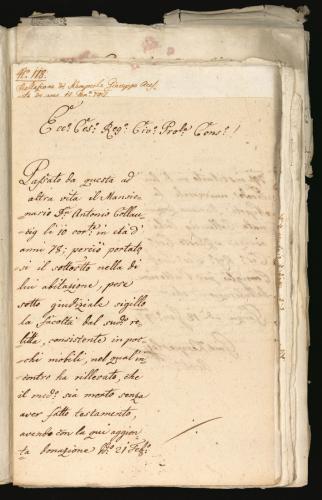 N.ro 118.
Relazione di Giuseppe
Ecc.o Ces.o Reg.o Civ.o Prov.o Cons.o!
Passato da questa ad
altra vita il Mansio-
nario D.n Antonio Collau-
vig li 10 cor.te in età d'
anni 78; perciò portato-
si il sottos.tto nella di
lui abitazione, pose
sotto giudiziale sigillo
la facoltà dal sud.o re-
litta, consistente in po-
chi mobili, nel qual in-
contro ha rillevato, che
il med.o sia morto senza
aver fatto testamento,
avendo con la qui aggion-
ta donazione 21 Feb.o